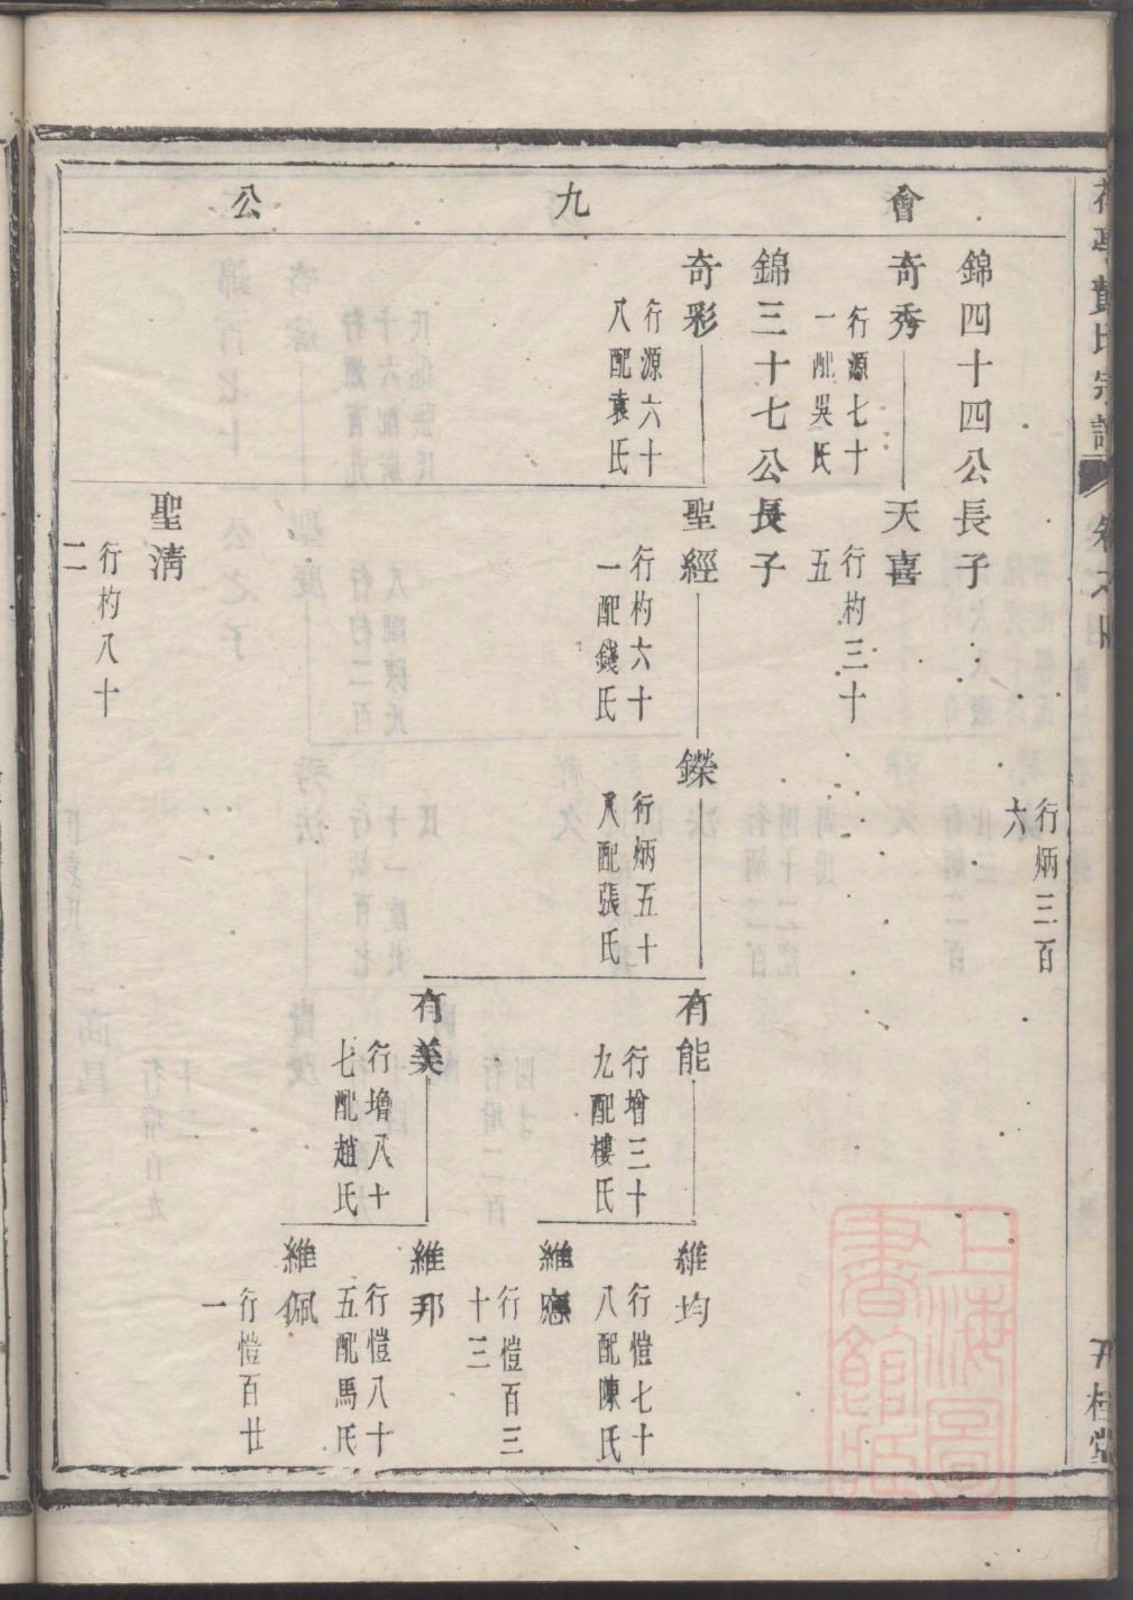 會九公
行炳三百
六
錦四十四公長子
奇秀
行源七十
一配吳氏
天喜
行杓三十
五
錦三十七公長子
奇彩
行源六十
八配袁氏
聖經
行杓六十
一配錢氏
鑅
行炳五十
八配張氏
有能
行增三十
九配樓氏
維均
行愷七十
八配陳氏
維應
行愷百三
十三
有美
行增八十
七配趙氏
維邦
行愷八十
五配馬氏
維佩
行愷百廿
一
聖清
行杓八十
二
氏宗譜
丹桂堂
上海圖
書館藏